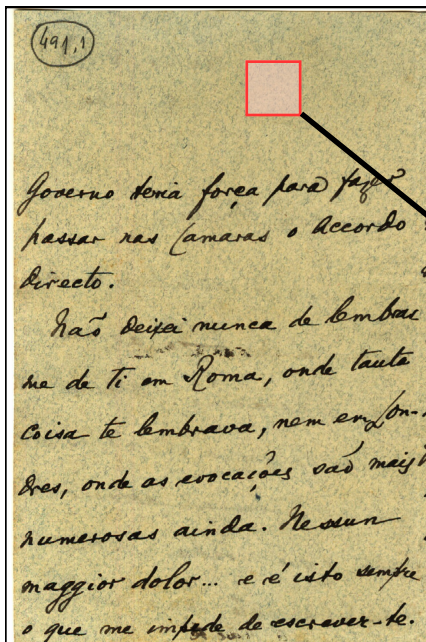 491,1
Governo teria força para fazer
passar nas Camaras o Accordo
directo.
Não deixei nunca de lembrar
me de ti em Roma, onde tanta
coisa te lembrava, nem em Lon-
dres, onde as evocações são mais
numerosas ainda. Nessun
maggior dolor... e é isto sempre
o que me impede de escrever-te.